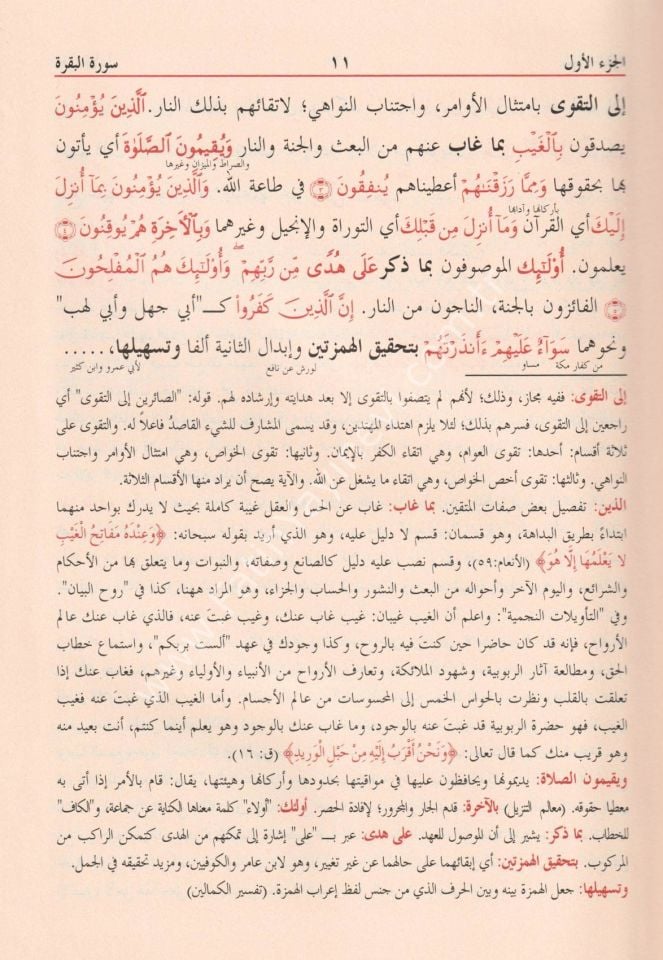 الجزء الأول ١١ سورة البقرة
إلى التقوى بامتثال الأوامر، واجتناب النواهي؛ لاتقائهم بذلك النار. ٱلَّذِينَ يُؤْمِنُونَ
يصدقون بِٱلْغَيْبِ بما غاب عنهم من البعث والجنة والنار وَيُقِيمُونَ ٱلصَّلَوٰةَ أي يأتون
والصراط والميزان وغيرها
بها بحقوقها وَمِمَّا رَزَقْنَٰهُمْ أعطيناهم يُنفِقُونَ ۝٣ في طاعة الله. وَٱلَّذِينَ يُؤْمِنُونَ بِمَآ أُنزِلَ
بأركانها وآدابها
إِلَيْكَ أي القرآن وَمَآ أُنزِلَ مِن قَبْلِكَ أي التوراة والإنجيل وغيرهما وَبِٱلْأٓخِرَةِ هُمْ يُوقِنُونَ ۝٤
يعلمون. أُوْلَٰٓئِكَ الموصوفون بما ذكر عَلَىٰ هُدًى مِّن رَّبِّهِمْ ۖ وَأُوْلَٰٓئِكَ هُمُ ٱلْمُفْلِحُونَ
۝٥ الفائزون بالجنة، الناجون من النار. إِنَّ ٱلَّذِينَ كَفَرُواْ كـ"أبي جهل وأبي لهب"
ونحوهما سَوَآءٌ عَلَيْهِمْ ءَأَنذَرْتَهُمْ بتحقيق الهمزتين وإبدال الثانية ألفا وتسهيلها، .....
من كفار مكة مساو لورش عن نافع لأبي عمرو وابن كثير
إلى التقوى: ففيه مجاز، وذلك؛ لأنهم لم يتصفوا بالتقوى إلا بعد هدايته وإرشاده لهم. قوله: "الصائرين إلى التقوى" أي
راجعين إلى التقوى، فسرهم بذلك؛ لئلا يلزم اهتداء المهتدين، وقد يسمى المشارف للشيء القاصدُ فاعلًا له. والتقوى على
ثلاثة أقسام: أحدها: تقوى العوام، وهي اتقاء الكفر بالإيمان. وثانيها: تقوى الخواص، وهي امتثال الأوامر واجتناب
النواهي. وثالثها: تقوى أخص الخواص، وهي اتقاء ما يشغل عن الله. والآية يصح أن يراد منها الأقسام الثلاثة.
الذين: تفصيل بعض صفات المتقين. بما غاب: غاب عن الحس والعقل غيبة كاملة بحيث لا يدرك بواحد منهما
ابتداءً بطريق البداهة، وهو قسمان: قسم لا دليل عليه، وهو الذي أريد بقوله سبحانه: ﴿وَعِنْدَهُ مَفَاتِحُ الْغَيْبِ
لا يَعْلَمُهَا إِلَّا هُوَ﴾ (الأنعام:٥٩)، وقسم نصب عليه دليل كالصانع وصفاته، والنبوات وما يتعلق بها من الأحكام
والشرائع، واليوم الآخر وأحواله من البعث والنشور والحساب والجزاء، وهو المراد ههنا، كذا في "روح البيان".
وفي "التأويلات النجمية": واعلم أن الغيب غيبان: غيب غاب عنك، وغيب غبتَ عنه، فالذي غاب عنك عالم
الأرواح، فإنه قد كان حاضرا حين كنتَ فيه بالروح، وكذا وجودك في عهد "ألست بربكم"، واستماع خطاب
الحق، ومطالعة آثار الربوبية، وشهود الملائكة، وتعارف الأرواح من الأنبياء والأولياء وغيرهم، فغاب عنك إذا
تعلقت بالقلب ونظرت بالحواس الخمس إلى المحسوسات من عالم الأجسام. وأما الغيب الذي غبتَ عنه فغيب
الغيب، فهو حضرة الربوبية قد غبتَ عنه بالوجود، وما غاب عنك بالوجود وهو يعلم أينما كنتم، أنت بعيد منه
وهو قريب منك كما قال تعالى: ﴿وَنَحْنُ أَقْرَبُ إِلَيْهِ مِنْ حَبْلِ الْوَرِيدِ﴾ (ق: ١٦).
ويقيمون الصلاة: يديمونها ويحافظون عليها في مواقيتها بحدودها وأركانها وهيئتها، يقال: قام بالأمر إذا أتى به
معطيا حقوقه. (معالم التنزيل) بالآخرة: قدم الجار والمجرور؛ لإفادة الحصر. أولئك: "أولاء" كلمة معناها الكناية عن جماعة، و"الكاف"
للخطاب. بما ذكر: يشير إلى أن الموصول للعهد. على هدى: عبر بـ "على" إشارة إلى تمكنهم من الهدى كتمكن الراكب من
المركوب. بتحقيق الهمزتين: أي إبقائهما على حالهما عن غير تغيير، وهو لابن عامر والكوفيين، ومزيد تحقيقه في الجمل.
وتسهيلها: جعل الهمزة بينه وبين الحرف الذي من جنس لفظ إعراب الهمزة. (تفسير الكمالين)